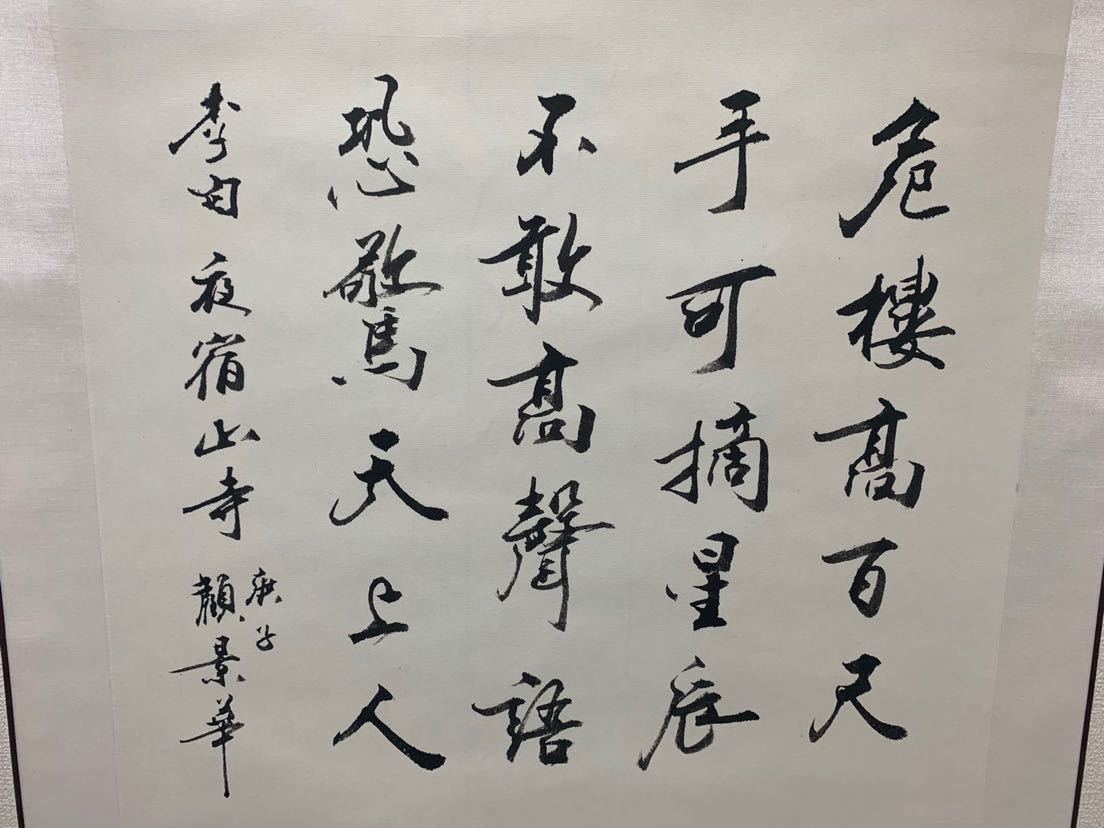 危樓高百尺
手可摘星辰
不敢高聲語
恐驚天上人
李白夜宿山寺
庚子
顏景華